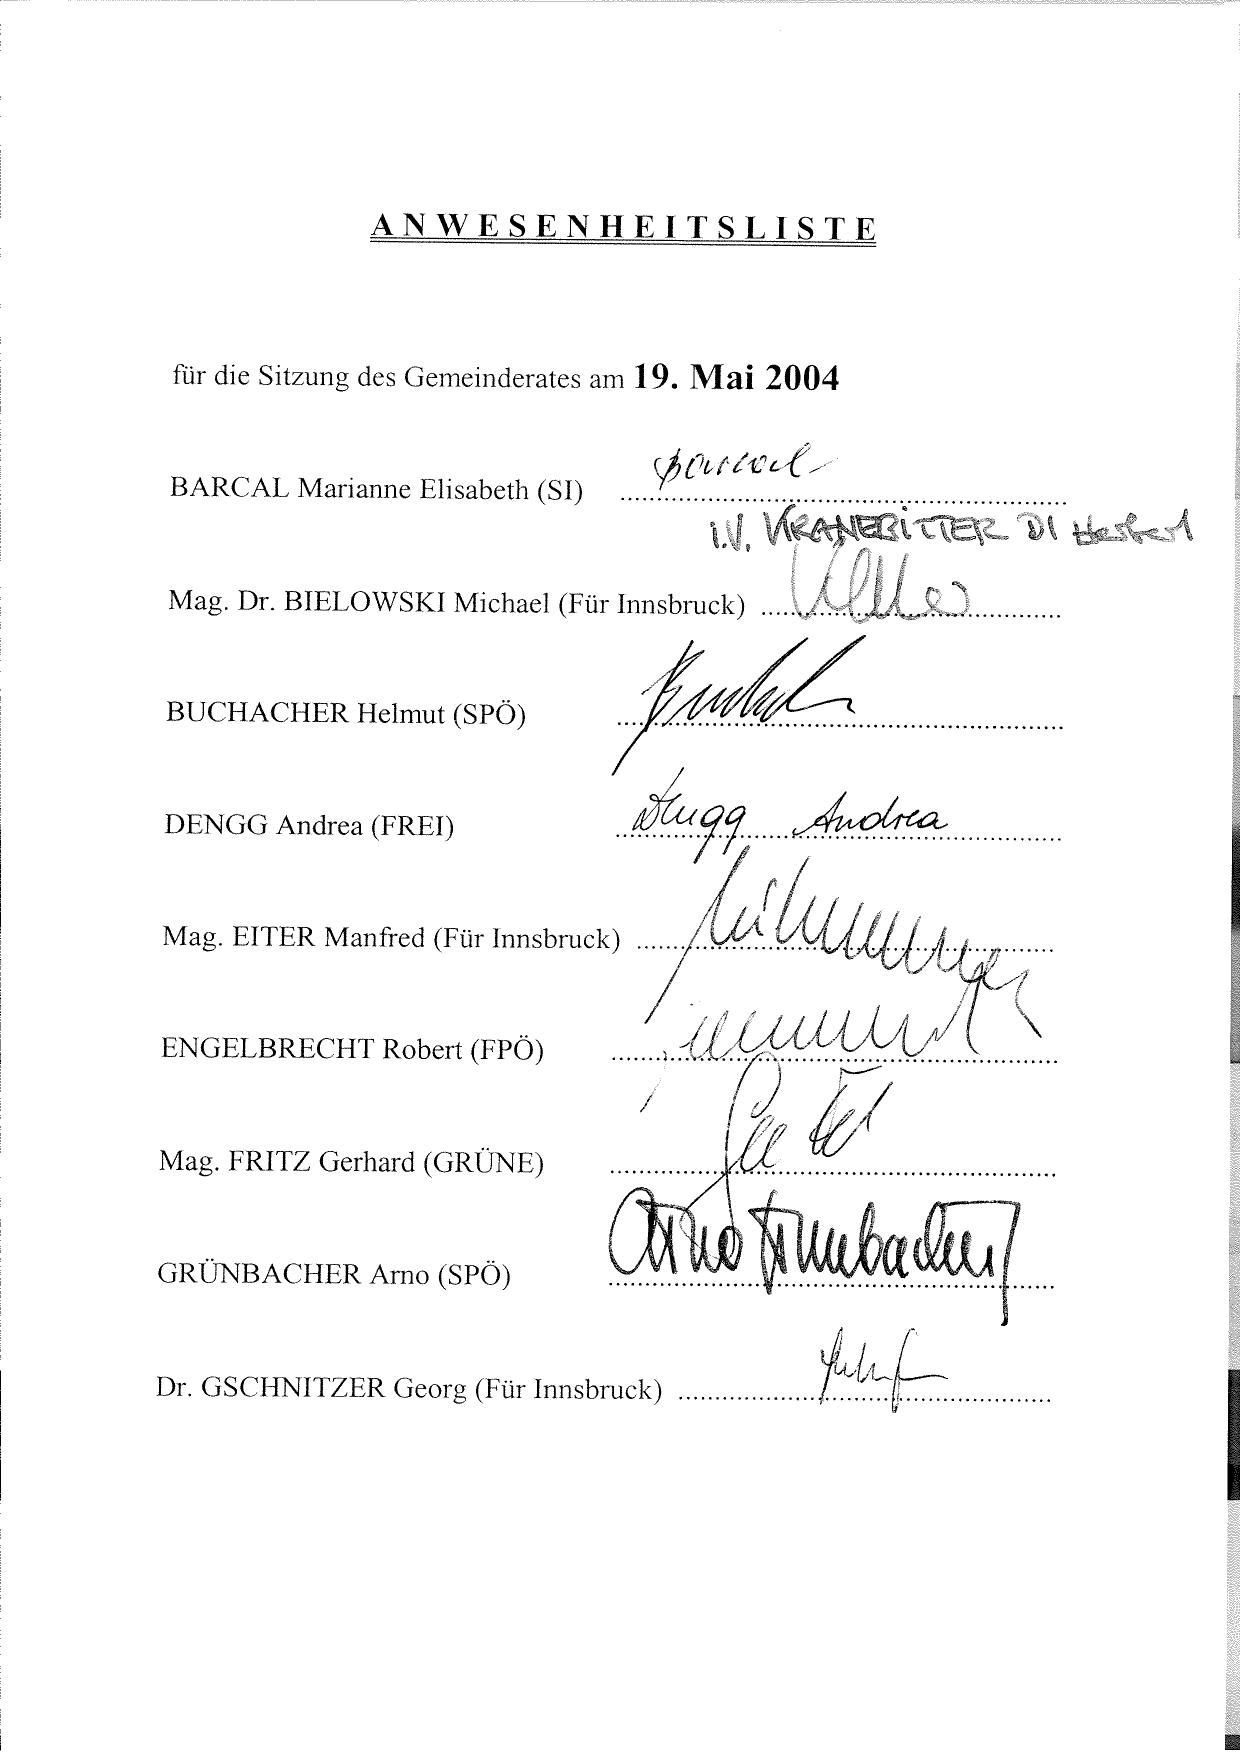 ANWESENHEITSLISTE
für die Sitzung des Gemeinderates am 19. Mai 2004
Barcal
BARCAL Marianne Elisabeth (SI) ........
i.V. KRANEBITTER DI Herbert
Mag. Dr. BIELOWSKI Michael (Für Innsbruck) ........
BUCHACHER Helmut (SPÖ) ........
DENGG Andrea (FREI) Dengg Andrea
Mag. EITER Manfred (Für Innsbruck) ........
ENGELBRECHT Robert (FPÖ) ........
Mag. FRITZ Gerhard (GRÜNE) ........
GRÜNBACHER Arno (SPÖ) Arno Grünbacher
Dr. GSCHNITZER Georg (Für Innsbruck) ........